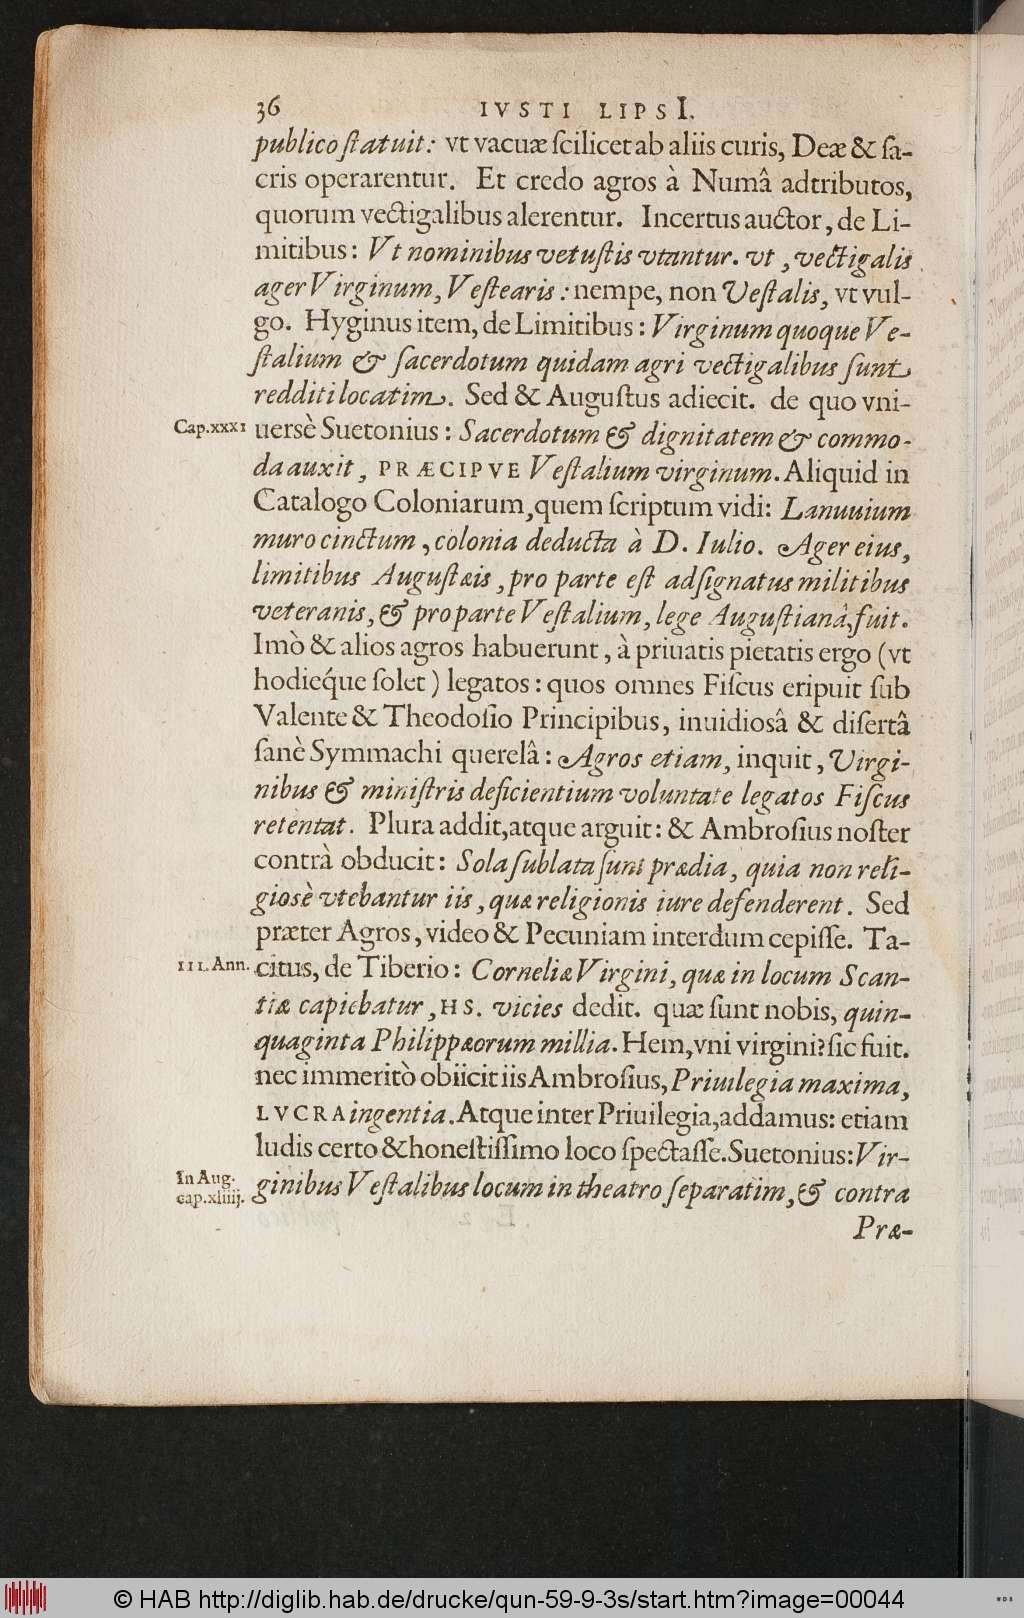 36 IVSTI LIPSI.
publico ſtatuit: vt vacuæ ſcilicet ab aliis curis, Deæ & ſa-
cris operarentur. Et credo agros à Numâ adtributos,
quorum vectigalibus alerentur. Incertus auctor, de Li-
mitibus: Vt nominibus vetuſtis vtantur. vt, vectigalis
ager Virginum, Veſtearis: nempe, non Veſtalis, vt vul-
go. Hyginus item, de Limitibus: Virginum quoque Ve-
ſtalium & ſacerdotum quidam agri vectigalibus ſunt
redditi locatim. Sed & Auguſtus adiecit. de quo vni-
Cap.xxxi
uersè Suetonius: Sacerdotum & dignitatem & commo-
da auxit, PRÆCIPVE Veſtalium virginum. Aliquid in
Catalogo Coloniarum, quem ſcriptum vidi: Lanuuium
muro cinctum, colonia deducta à D. Iulio. Ager eius,
limitibus Auguſtæis, pro parte eſt adſignatus militibus
veteranis, & pro parte Veſtalium, lege Auguſtianâ, fuit.
Imò & alios agros habuerunt, à priuatis pietatis ergo (vt
hodieq́ue ſolet) legatos: quos omnes Fiſcus eripuit ſub
Valente & Theodoſio Principibus, inuidiosâ & diſertâ
ſanè Symmachi querelâ: Agros etiam, inquit, Virgi-
nibus & miniſtris deficientium voluntate legatos Fiſcus
retentat. Plura addit, atque arguit: & Ambroſius noſter
contrà obducit: Sola ſublata ſunt prædia, quia non reli-
giosè vtebantur iis, quæ religionis iure defenderent. Sed
præter Agros, video & Pecuniam interdum cepiſſe. Ta-
III. Ann.
citus, de Tiberio: Corneliæ Virgini, quæ in locum Scan-
tiæ capiebatur, HS. vicies dedit. quæ ſunt nobis, quin-
quaginta Philippæorum millia. Hem, vni virgini? ſic fuit.
nec immeritò obiicit iis Ambroſius, Priuilegia maxima,
LVCRA ingentia. Atque inter Priuilegia, addamus: etiam
ludis certo & honeſtiſſimo loco ſpectaſſe. Suetonius: Vir-
In Aug.
cap.xliiij.
ginibus Veſtalibus locum in theatro ſeparatim, & contra
Præ-
© HAB http://diglib.hab.de/drucke/qun-59-9-3s/start.htm?image=00044